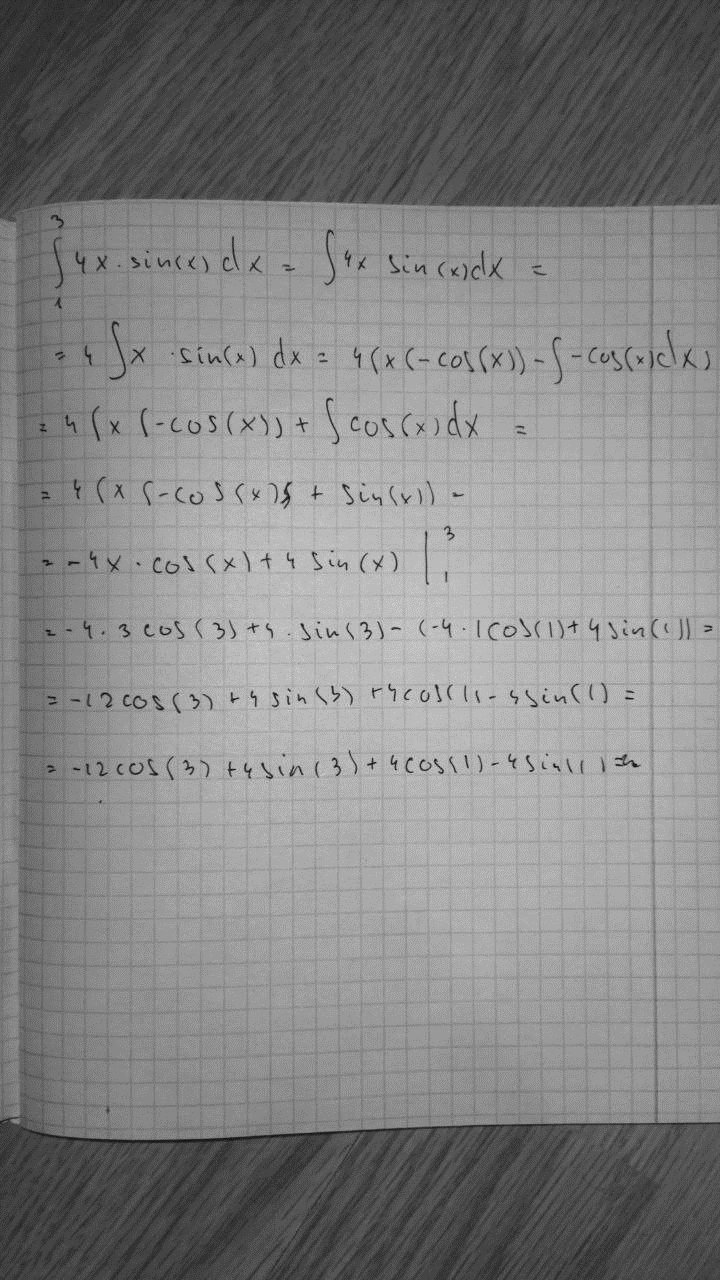 3
∫ 4x·sin(x) dx = ∫4x sin(x)dx =
1
= 4 ∫x ·sin(x) dx = 4(x(-cos(x))-∫-cos(x)dx)
= 4(x(-cos(x))+∫cos(x)dx =
= 4(x(-cos(x)) + sin(x)) =
= -4x·cos(x)+4sin(x) |³₁
= -4·3cos(3)+4·sin(3)-(-4·1cos(1)+4sin(1)) =
= -12cos(3)+4sin(3)+4cos(1)-4sin(1) =
= -12cos(3)+4sin(3)+4cos(1)-4sin(1)